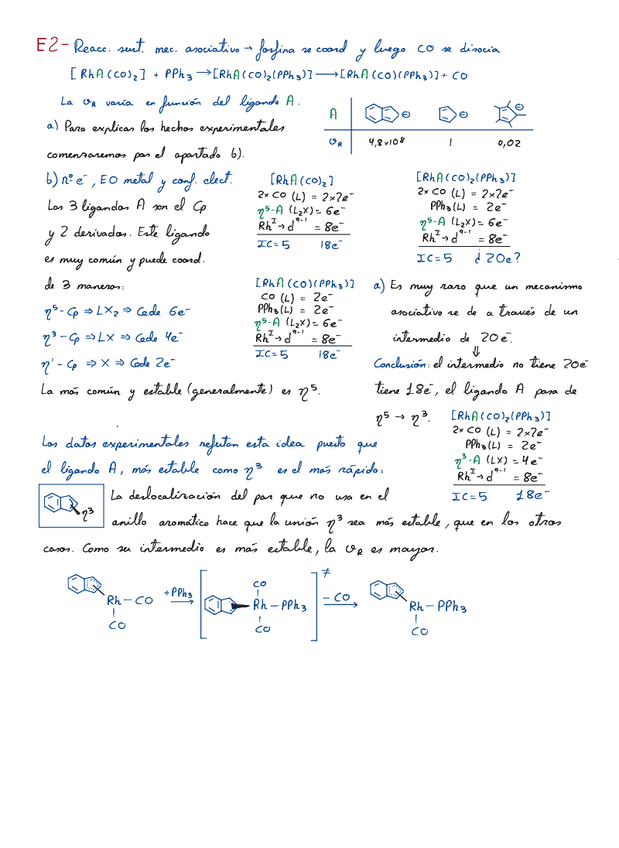 E2- Reacc. sust. mec. asociativo → fosfina se coord y luego CO se disocia
[RhA(CO)2] + PPh3 → [RhA(CO)2(PPh3)] → [RhA(CO)(PPh3)] + CO
La vR varía en función del ligando A.
A ⊖ ⊖ ⊖
vR 4,8x10⁸ 1 0,02
a) Para explicar los hechos experimentales
comenzaremos por el apartado b).
b) nº e⁻, EO metal y conf. elect.
Los 3 ligandos A son el Cp
y 2 derivados. Este ligando
es muy común y puede coord.
de 3 maneras:
η⁵-Cp ⇒ LX2 ⇒ Cede 6e⁻
η³-Cp ⇒ LX ⇒ Cede 4e⁻
η¹-Cp ⇒ X ⇒ Cede 2e⁻
La más común y estable (generalmente) es η⁵.
[RhA(CO)2]
2x CO (L) = 2x2e⁻
η⁵-A (L2X) = 6e⁻
Rhᴵ → d⁹⁻¹ = 8e⁻
IC=5 18e⁻
[RhA(CO)2(PPh3)]
2x CO (L) = 2x2e⁻
PPh3 (L) = 2e⁻
η⁵-A (L2X) = 6e⁻
Rhᴵ → d⁹⁻¹ = 8e⁻
IC=5 ¿20e?
[RhA(CO)(PPh3)]
CO (L) = 2e⁻
PPh3 (L) = 2e⁻
η⁵-A (L2X) = 6e⁻
Rhᴵ → d⁹⁻¹ = 8e⁻
IC=5 18e⁻
a) Es muy raro que un mecanismo
asociativo se de a través de un
intermedio de 20e⁻.
⇓
Conclusión: el intermedio no tiene 20e⁻
tiene 18e⁻, el ligando A pasa de
η⁵ → η³.
[RhA(CO)2(PPh3)]
2x CO (L) = 2x2e⁻
PPh3 (L) = 2e⁻
η³-A (LX) = 4e⁻
Rhᴵ → d⁹⁻¹ = 8e⁻
IC=5 18e⁻
Los datos experimentales refutan esta idea puesto que
el ligando A, más estable como η³ es el más rápido:
η³
La deslocalización del par que no usa en el
anillo aromático hace que la unión η³ sea más estable, que en los otros
casos. Como su intermedio es más estable, la vR es mayor.
Rh-CO
CO
+PPh3 →
CO
Rh-PPh3
CO
≠
-CO →
Rh-PPh3
CO